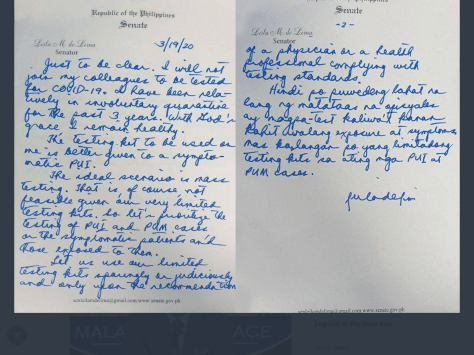 Republic of the Philippines
Senate
Leila M. de Lima
Senator
3/19/20
Just to be clear. I will not
join my colleagues to be tested
for COVID-19. I have been rela-
tively in involuntary quarantine
for the past 3 years. With God's
grace I remain healthy.
The testing kit to be used on
me is better given to a sympto-
matic PUI.
The ideal scenario is mass
testing. That is, of course, not
feasible given our very limited
testing kits. So let's prioritize the
testing of PUI and PUM cases
or the symptomatic patients and
those exposed to them.
Let us use our limited
testing kits sparingly or judiciously
and only upon the recommendation
Republic of the Philippines
Senate
-2-
of a physician or a health
professional complying with
testing standards.
Hindi po puwedeng lahat na
lang ng matataas na opisyales
ay magpa-test kaliwa't kanan
kahit walang exposure at symptoms.
Mas kaylangan po yang limitadong
testing kits sa ating mga PUI at
PUM cases.
MALA
ACE